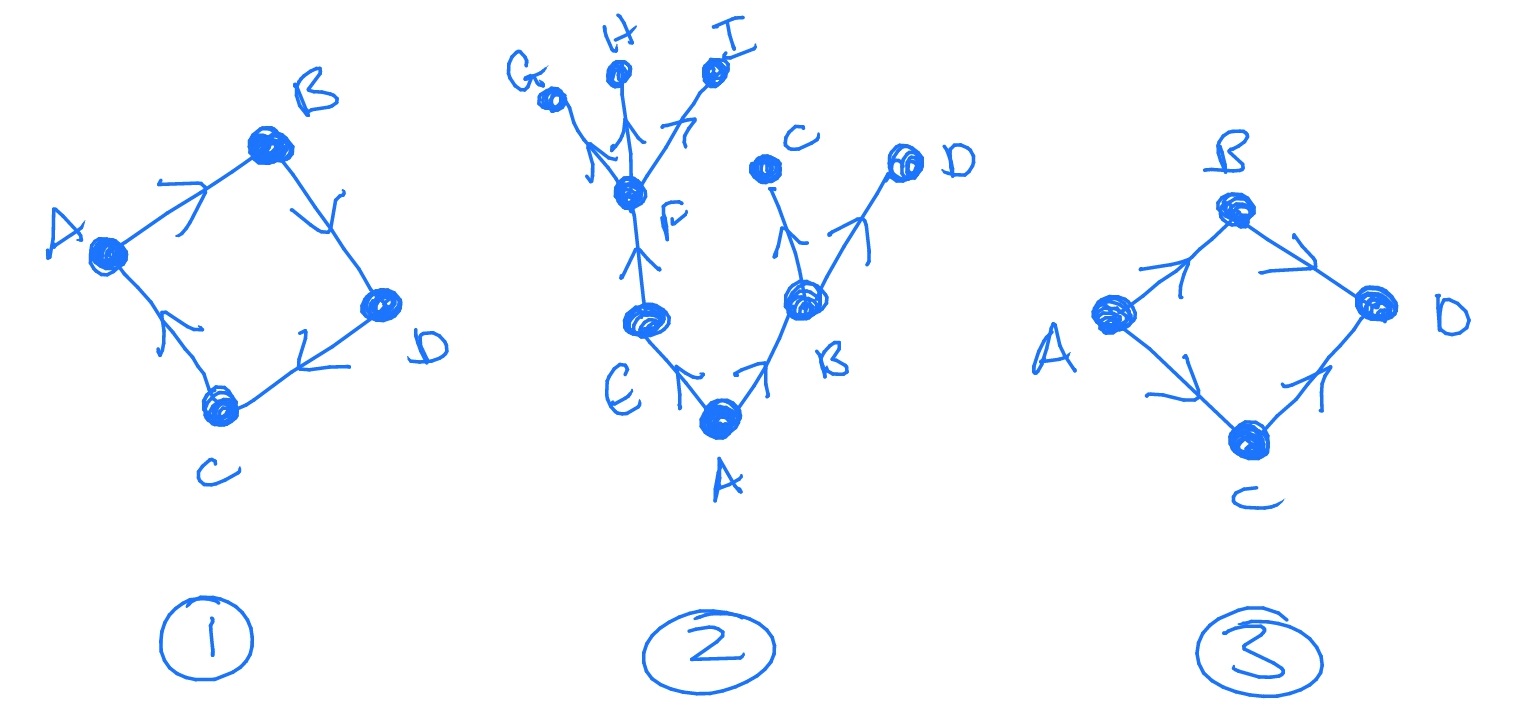 B
A
D
C
G
H
I
C
D
F
E
B
A
B
A
D
C
1
2
3